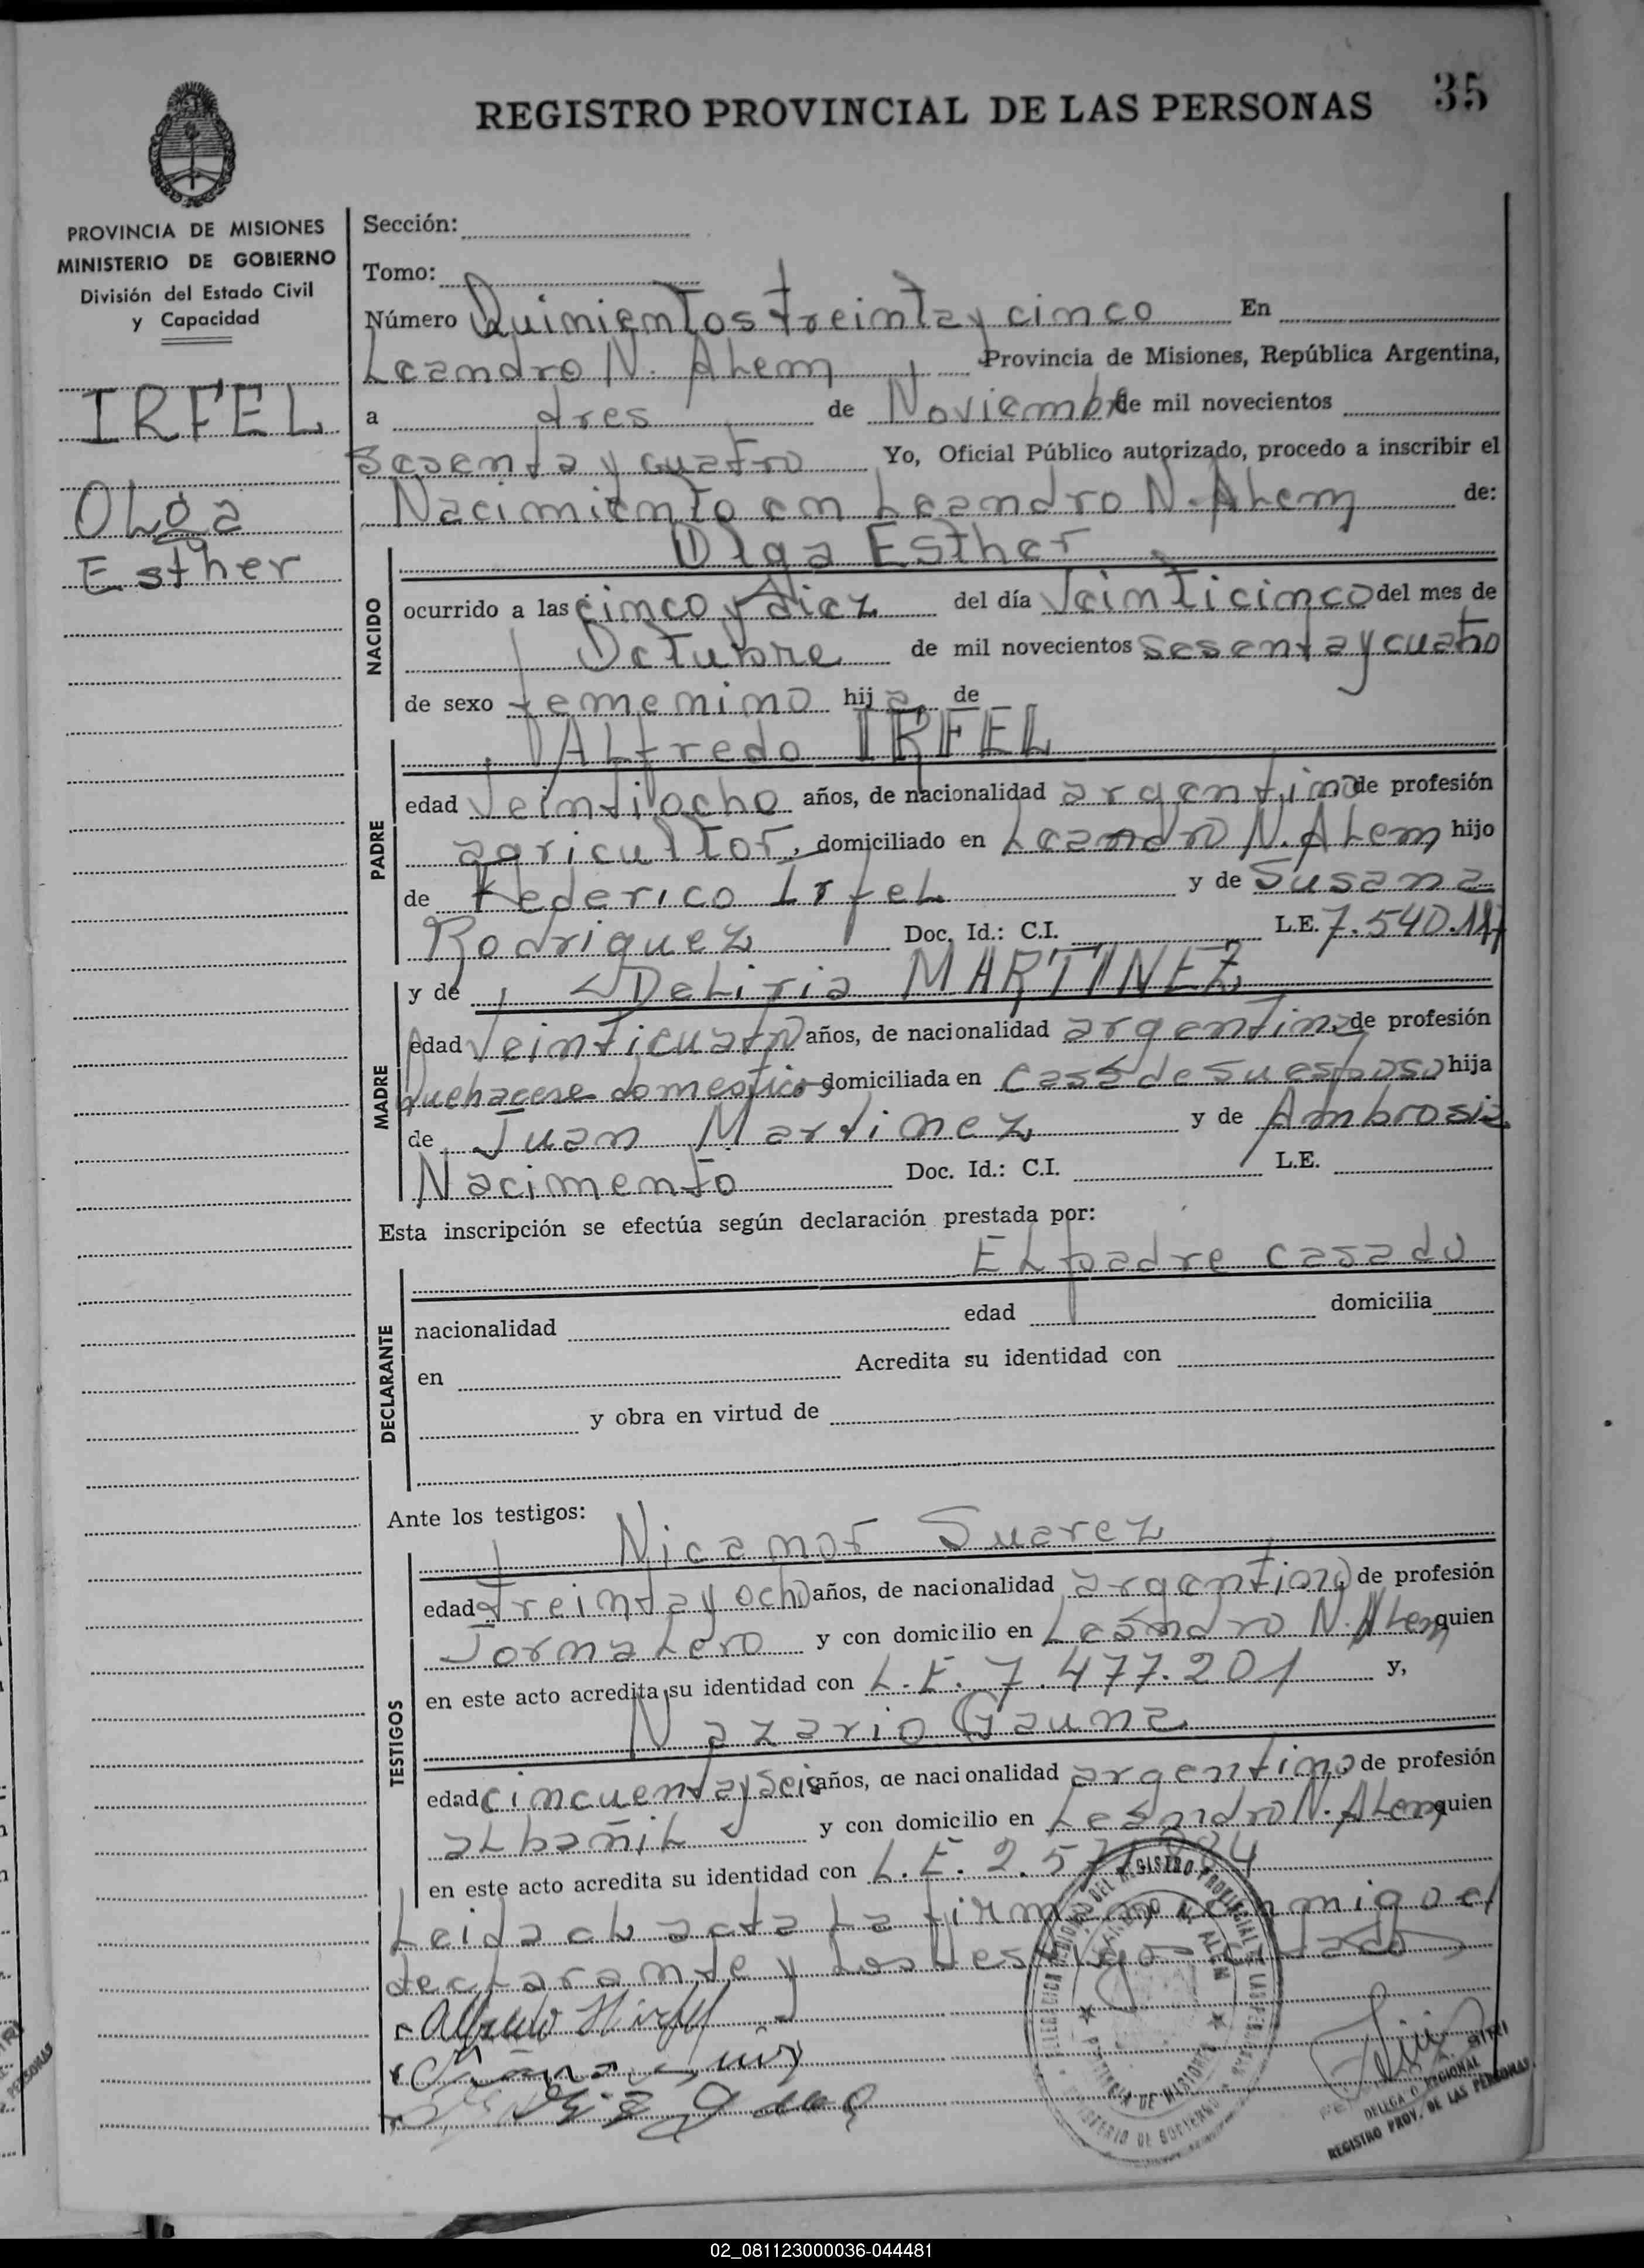 35
REGISTRO PROVINCIAL DE LAS PERSONAS
PROVINCIA DE MISIONES
MINISTERIO DE GOBIERNO
División del Estado Civil
y Capacidad
IRFEL
OLga
Esther
Sección:
Tomo:
Número Quinientos treinta y cinco En
Leandro N. ALem Provincia de Misiones, República Argentina,
a tres de Noviembre de mil novecientos
sesenta y cuatro Yo, Oficial Público autorizado, procedo a inscribir el
Nacimiento en Leandro N. ALem de:
NACIDO
Olga Esther
ocurrido a las cinco y diez del día Veinticinco del mes de
Octubre de mil novecientos sesenta y cuatro
de sexo femenino hija de
PADRE
ALfredo IRFEL
edad Veintiocho años, de nacionalidad argentino de profesión
agricultor, domiciliado en Leandro N. ALem hijo
de Federico Irfel y de Susana
Rodriguez Doc. Id.: C.I. L.E. 7.540.117
MADRE
y de DeLiria MARTINEZ
edad Veinticuatro años, de nacionalidad argentina de profesión
Quehacere domestico domiciliada en casa de su esposo hija
de Juan Martinez y de Ambrosia
Nacimento Doc. Id.: C.I. L.E.
Esta inscripción se efectúa según declaración prestada por:
DECLARANTE
EL padre casado
nacionalidad edad domicilia
en Acredita su identidad con
y obra en virtud de
Ante los testigos:
TESTIGOS
Nicanor Suarez
edad treinta y ocho años, de nacionalidad argentino de profesión
JornaLero y con domicilio en Leandro N. ALem quien
en este acto acredita su identidad con L.E. 7.477.201 y,
Nazario Gauna
edad cincuenta y seis años, de nacionalidad argentino de profesión
aLbañiL y con domicilio en Leandro N. ALem quien
en este acto acredita su identidad con L.E. 2.571
Leida eL acta La firman conmigo el
decLarante y Los testigos citados
Alfredo Hirfel
PROVINCIA DE MISIONES
DELEGADO REGIONAL
REGISTRO PROV. DE LAS PERSONAS
02_081123000036-044481